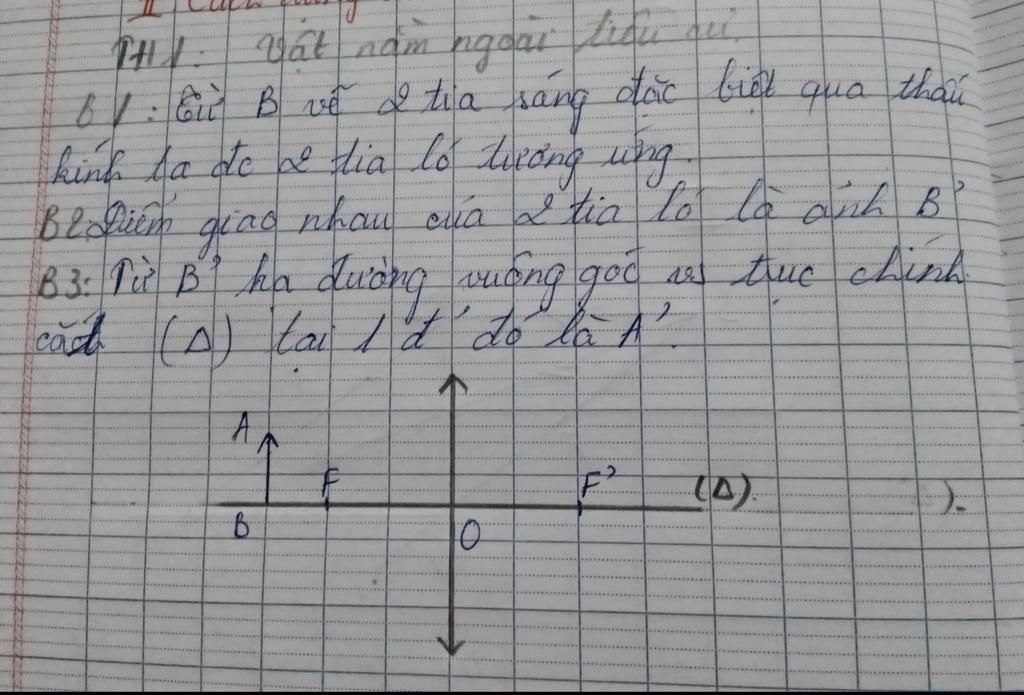 II Cách dựng
TH1: Vật nằm ngoài tiêu cự.
B1: Từ B vẽ 2 tia sáng đặc biệt qua thấu
kính ta đc 2 tia ló tương ứng.
B2: Điểm giao nhau của 2 tia ló là ảnh B'
B3: Từ B' hạ đường vuông góc vs trục chính
cắt (Δ) tại 1 đ' đó là A'.
A
F F' (Δ) ).
B O